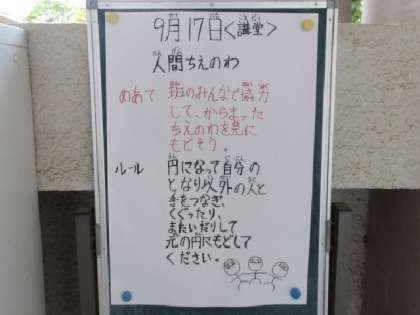 9月17日<講堂>
人間ちえのわ
めあて 班のみんなで協力
して、からまった
ちえのわを元に
もどそう。
ルール 円になって自分の
となり以外の人と
手をつなぎ、
くぐったり、
またいだりして
元の円にもどして
ください。